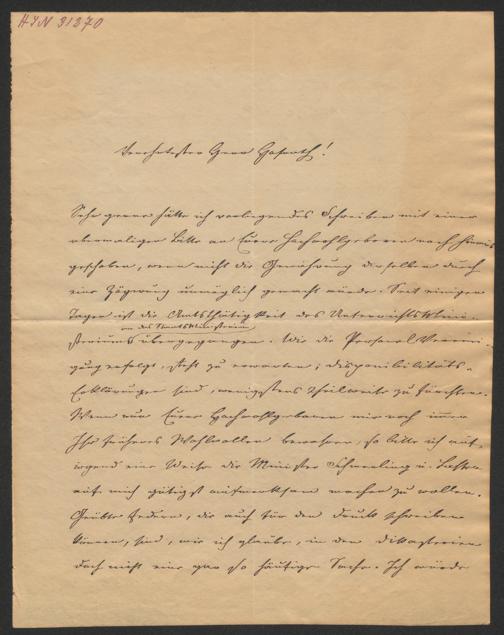 HIN 31370
Verehrtester Herr Hofrath!
Sehr gerne hätte ich vorliegendes Schreiben mit einer
abermaligen Bitte an Euer Hochwohlgeboren noch hinaus
geschoben, wenn nicht die Gewährung derselben durch
eine Zögerung unmöglich gemacht würde. Seit einigen
Tagen ist die Amtsthätigkeit des Unterrichtsmini-
an das Staatsministerium
steriums übergegangen. Wie die Personal
erfolgt, steht zu erwarten; Disponibilitäts-
Erklärungen sind, wenigstens theilweise zu fürchten.
Wenn nun Euer Hochwohlgeboren mir noch immer
Ihr früheres Wohlwollen bewahren, so bitte ich auf
irgend eine Weise die Minister Schmerling u. Lasser
auf mich gütigst aufmerksam machen zu wollen.
Geübte Federn, die auch für den Druck schreiben
können, sind, wie ich glaube, in den Dikasterien
doch nicht eine gar so häufige Sache. Ich würde